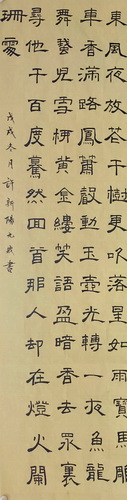 東風夜放花千樹更吹落星如雨寶馬雕
車香滿路鳳簫聲動玉壺光轉一夜魚龍
舞蛾兒雪柳黃金縷笑語盈暗香去眾裏
尋他千百度驀然回首那人却在燈火闌
珊處
戊戌冬月許朝陽書